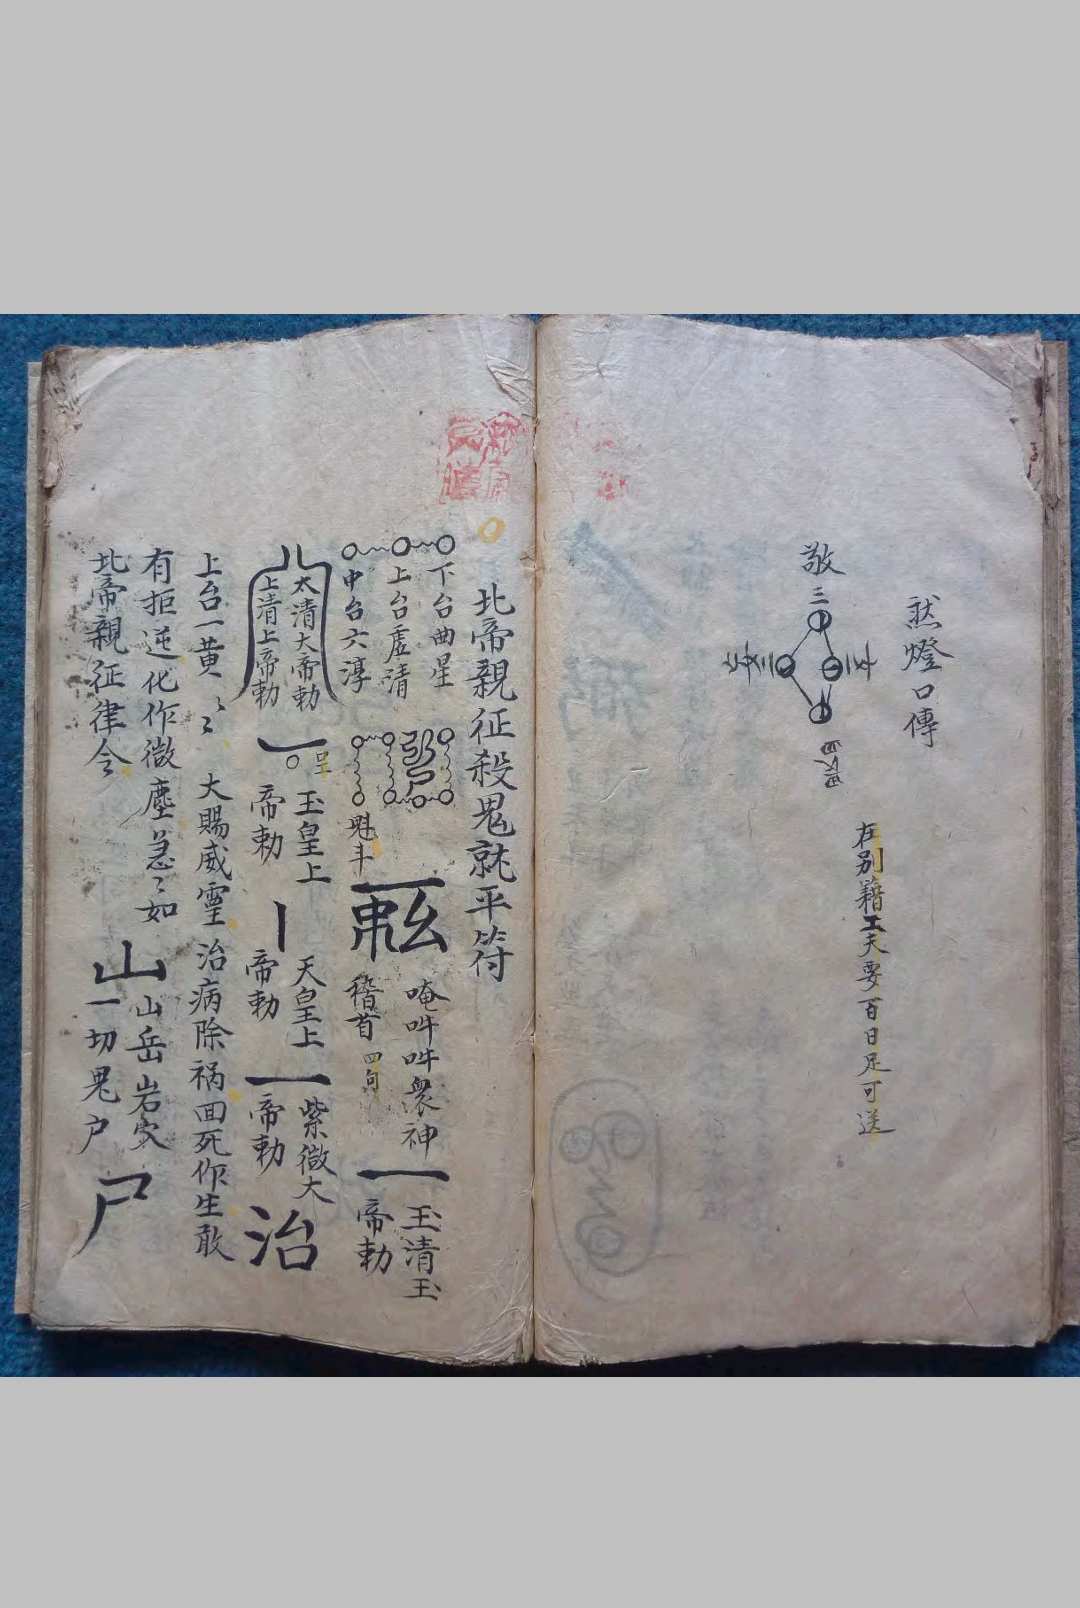 燃燈口傳
敬
三
在別籍工夫要百日足可送
北帝親征殺鬼就平符
下台曲星
上台虛清
中台六淳
魁斗
唵吽吽眾神
稽首四句
玉清玉
帝勅
太清大帝勅
上清上帝勅
玉皇上
帝勅
天皇上
帝勅
紫微大
帝勅
治
上台一黃
大賜威靈治病除祸回死作生敢
有拒逆化作微塵急〻如
北帝親征律令
山
山岳岩
一切鬼户
尸